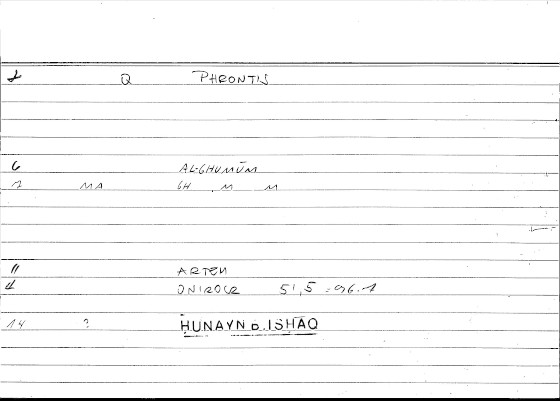 2 Q PHRONTIS
6 AL-GHUMŪM
7 MA GH M M
11 ARTEM
4 ONIROCR 51,5 = 96.1
14 ? ḤUNAYN B. ISḤĀQ